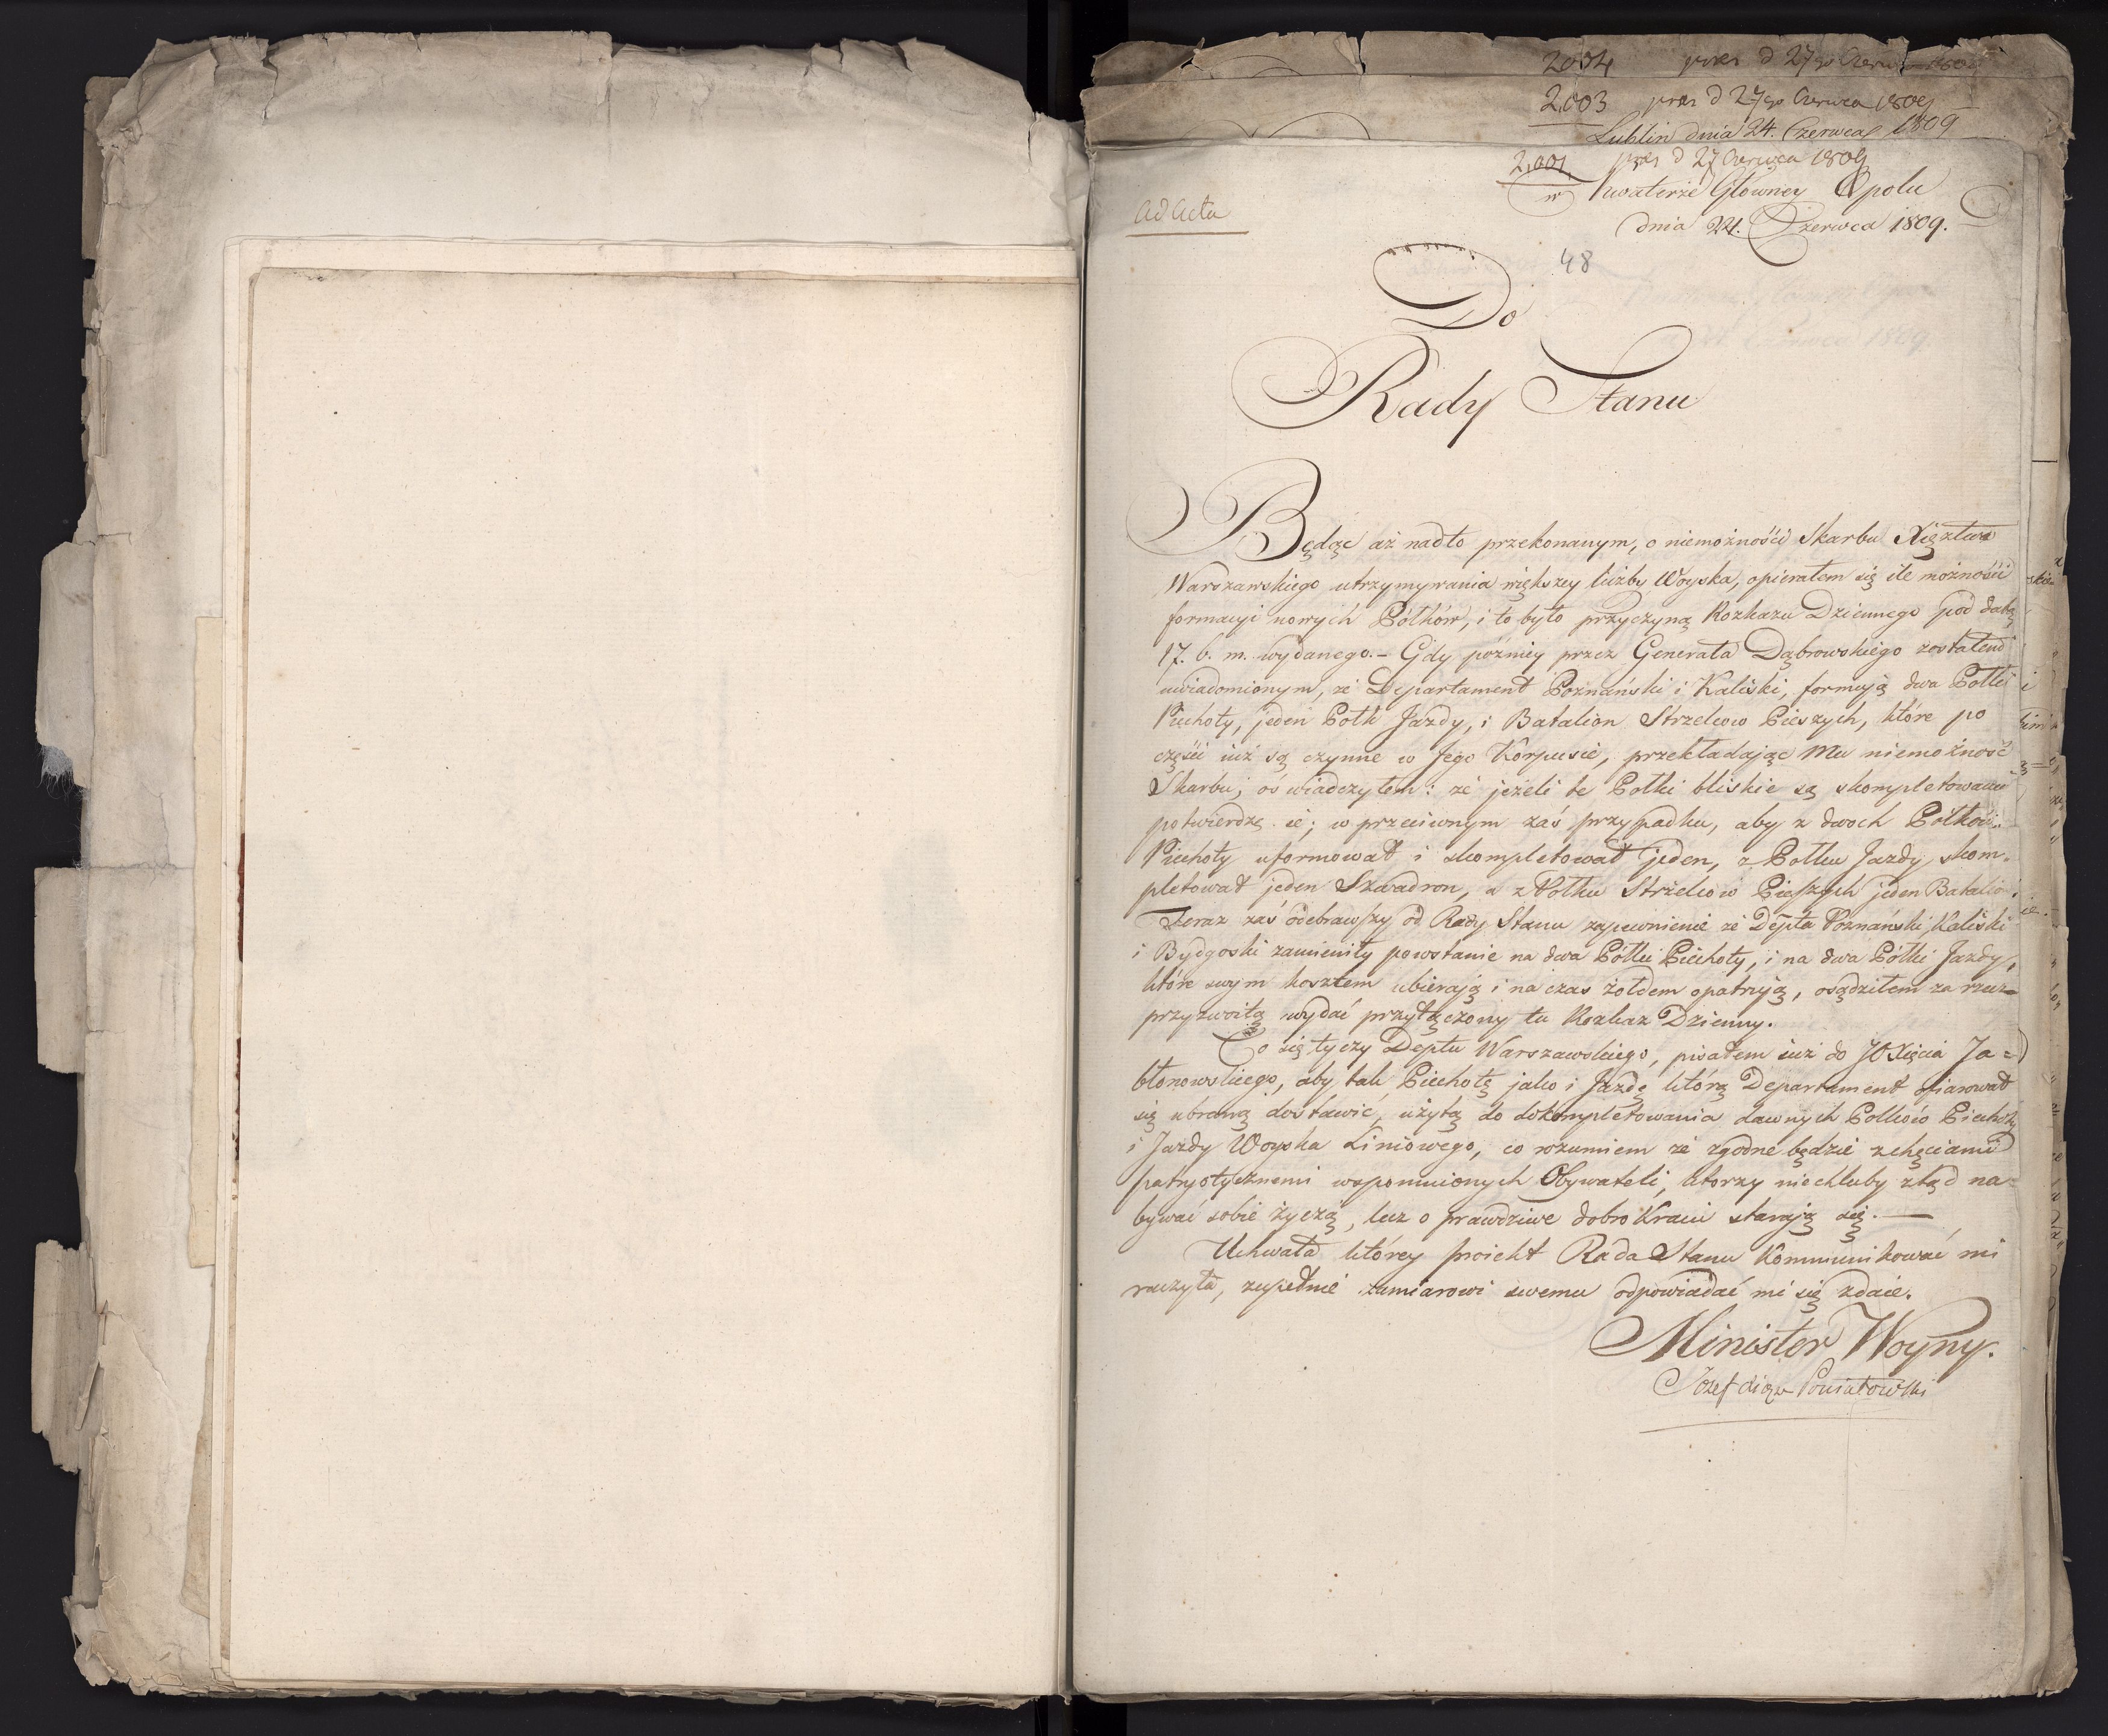 2004 prez d 27go Czerwca 1809
2003 prez d 27go Czerwca 1809
Lublin dnia 24. Czerwca 1809
2,001. prez d 27 Czerwca 1809
w Kwaterze Główney Opolu
dnia 24. Czerwca 1809.
Ad Acta
48
Do
Rady Stanu
Będąc aż nadto przekonanym, o niemożności Skarbu Xięztwa
Warszawskiego utrzymywania większey liczby Woyska, opierałem się ile możności
formacyi nowych Półków, i to było przyczyną Rozkazu Dziennego pod datą
17. b. m. wydanego. – Gdy późniey przez Generała Dąbrowskiego zostałem
uwiadomionym, że Departament Poznański i Kaliski, formują dwa Pólki
Piechoty, jeden Pólk Jazdy, i Batalion Strzelców Pieszych, które po
części iuż są czynne w Jego Korpusie, przekładając Mu niemożność
Skarbu, oświadczyłem: że jeżeli te Pólki bliskie są skompletowania
potwierdzę ie; w przeciwnym zaś przypadku, aby z dwoch Pólków
Piechoty uformował i skompletował jeden, z Pólku Jazdy skom-
pletował jeden Szwadron, a z Pólku Strzelców Pieszych jeden Batalion
Teraz zaś odebrawszy od Rady Stanu zapewnienie że Depta Poznański, Kaliski
i Bydgoski zamieniły powstanie na dwa Pólki Piechoty, i na dwa Pólki Jazdy,
które swym kosztem ubierają i na czas żołdem opatrują, osądziłem za rzecz
przyzwoitą wydać przyłączony tu Rozkaz Dzienny.
Co się tyczy Deptu Warszawskiego, pisałem iuż do JO Xięcia Ja=
błonowskiego, aby tak Piechotę jako i Jazdę którą Departament ofiarował
się ubraną dostawić, użytą do dokompletowania dawnych Pólków Piechoty
i Jazdy Woyska Liniowego, co rozumiem że zgodne będzie z chęciami
patryotycznemi wspomnionych Obywateli, ktorzy nie chluby ztąd na=
bywać sobie życzą, lecz o prawdziwe dobro Kraiu starają się. —
Uchwała którey proiekt Rada Stanu Kommunikować mi
raczyła, zupełnie zamiarowi swemu odpowiadać mi się zdaie.
Minister Woyny.
Józef Xiąże Poniatowski